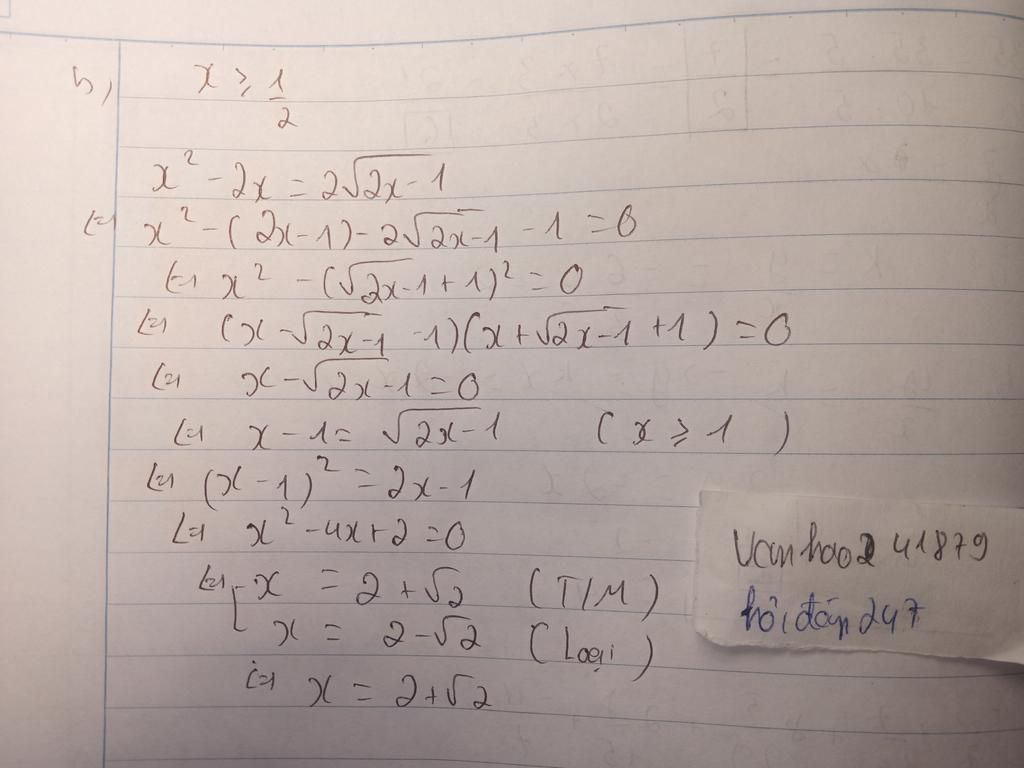 b) x ≥ 1/2
x² - 2x = 2√(2x-1)
⇔ x² - (2x-1) - 2√(2x-1) - 1 = 0
⇔ x² - (√(2x-1) + 1)² = 0
⇔ (x - √(2x-1) - 1)(x + √(2x-1) + 1) = 0
⇔ x - √(2x-1) - 1 = 0
⇔ x - 1 = √(2x-1) (x ≥ 1)
⇔ (x - 1)² = 2x - 1
⇔ x² - 4x + 2 = 0
⇔ [ x = 2 + √2 (T/M)
x = 2 - √2 (Loại)
⇔ x = 2 + √2
vanhao241879
hỏi đáp 247